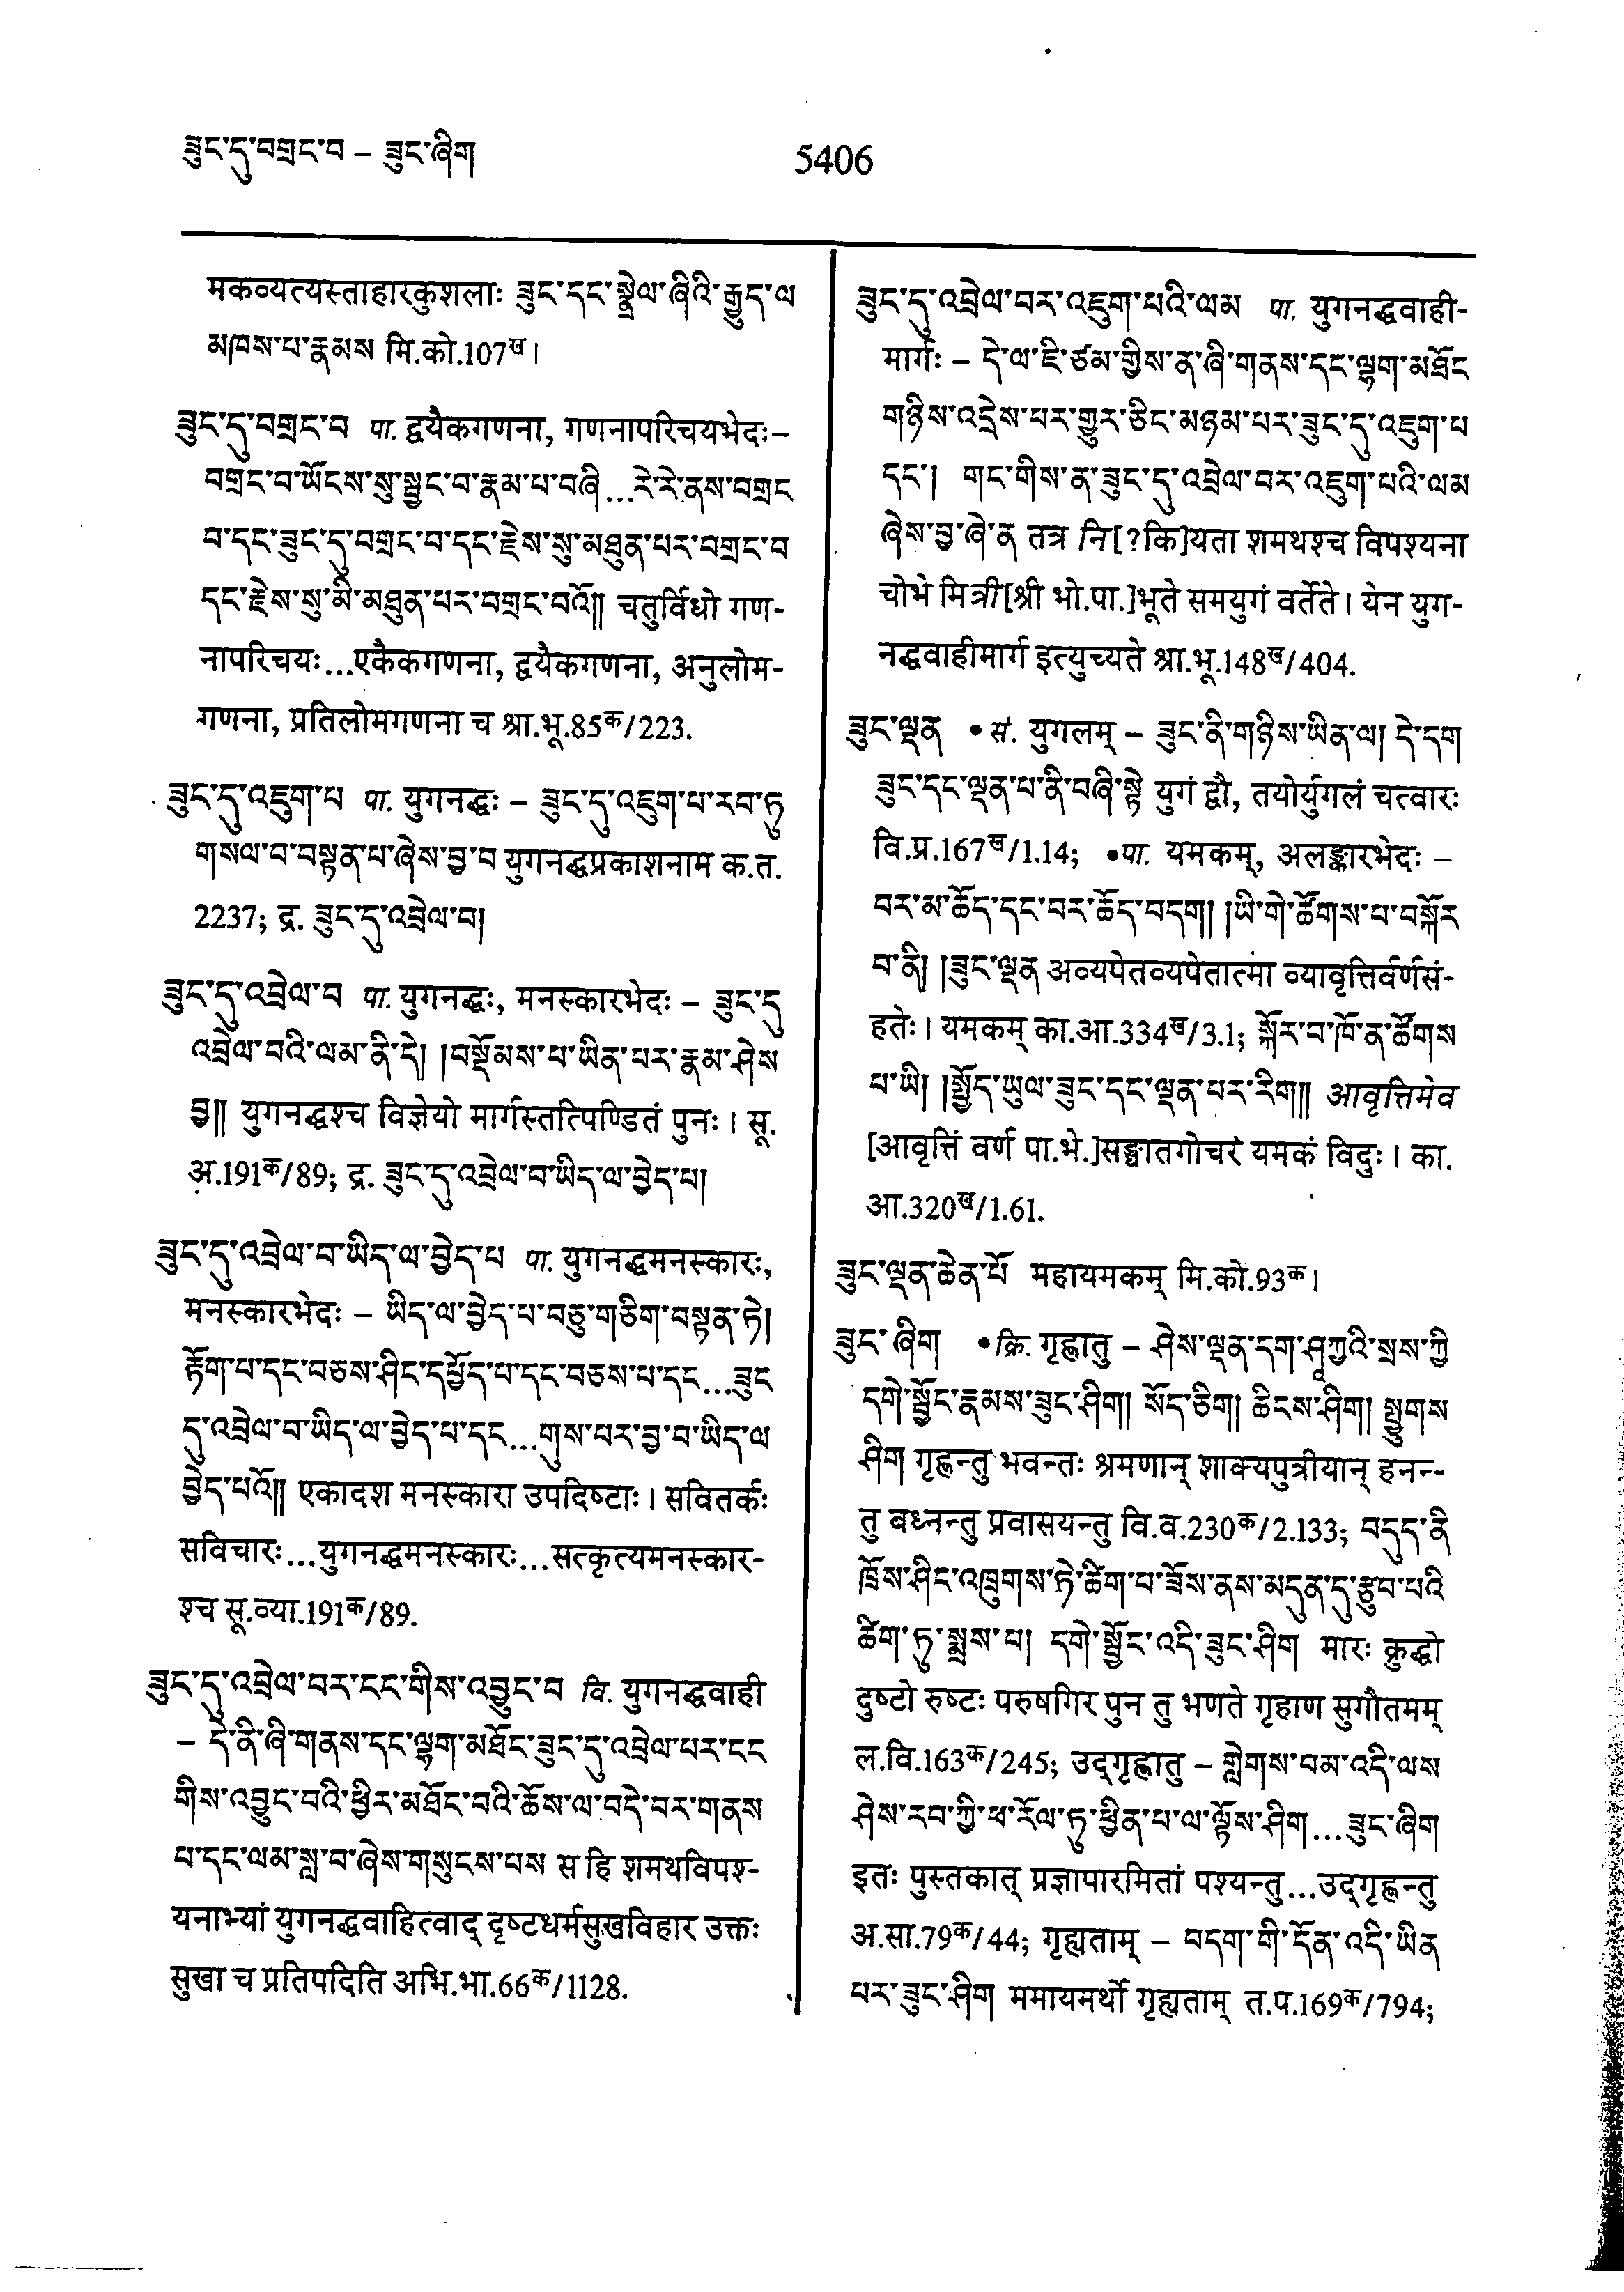 ཟུང་དུ་བགྲང་བ – ཟུང་ཞིག
5406
मकव्यत्यस्ताहारकुशलाः ཟུང་དང་སྣྲེལ་ཞིའི་རྒྱུད་ལ
མཁས་པ་རྣམས मि.को.107ख।
ཟུང་དུ་བགྲང་བ पा. द्वयैकगणना, गणनापरिचयभेदः–
བགྲང་བ་ཡོངས་སུ་སྦྱང་བ་རྣམ་པ་བཞི...རེ་རེ་ནས་བགྲང
བ་དང་ཟུང་དུ་བགྲང་བ་དང་རྗེས་སུ་མཐུན་པར་བགྲང་བ
དང་རྗེས་སུ་མི་མཐུན་པར་བགྲང་བའོ༎ चतुर्विधो गण-
नापरिचयः...एकैकगणना, द्वयैकगणना, अनुलोम-
गणना, प्रतिलोमगणना च श्रा.भू.85क/223.
ཟུང་དུ་འཇུག་པ पा. युगनद्धः – ཟུང་དུ་འཇུག་པ་རབ་ཏུ
གསལ་བ་བསྟན་པ་ཞེས་བྱ་བ युगनद्धप्रकाशनाम क.त.
2237; द्र. ཟུང་དུ་འབྲེལ་བ།
ཟུང་དུ་འབྲེལ་བ पा. युगनद्धः, मनस्कारभेदः – ཟུང་དུ
འབྲེལ་བའི་ལམ་ནི་དེ། །བསྡོམས་པ་ཡིན་པར་རྣམ་ཤེས
བྱ༎ युगनद्धश्च विज्ञेयो मार्गस्तत्पिण्डितं पुनः। सू.
अ.191क/89; द्र. ཟུང་དུ་འབྲེལ་བ་ཡིད་ལ་བྱེད་པ།
ཟུང་དུ་འབྲེལ་བ་ཡིད་ལ་བྱེད་པ पा. युगनद्धमनस्कारः,
मनस्कारभेदः – ཡིད་ལ་བྱེད་པ་བཅུ་གཅིག་བསྟན་ཏེ།
རྟོག་པ་དང་བཅས་ཤིང་དཔྱོད་པ་དང་བཅས་པ་དང...ཟུང
དུ་འབྲེལ་བ་ཡིད་ལ་བྱེད་པ་དང...གུས་པར་བྱ་བ་ཡིད་ལ
བྱེད་པའོ༎ एकादश मनस्कारा उपदिष्टाः। सवितर्कः
सविचारः...युगनद्धमनस्कारः...सत्कृत्यमनस्कार-
श्च सू.व्या.191क/89.
ཟུང་དུ་འབྲེལ་བར་ངང་གིས་འབྱུང་བ वि. युगनद्धवाही
– དེ་ནི་ཞི་གནས་དང་ལྷག་མཐོང་ཟུང་དུ་འབྲེལ་པར་ངང
གིས་འབྱུང་བའི་ཕྱིར་མཐོང་བའི་ཆོས་ལ་བདེ་བར་གནས
པ་དང་ལམ་སླ་བ་ཞེས་གསུངས་པས स हि शमथविपश्-
यनाभ्यां युगनद्धवाहित्वाद् दृष्टधर्मसुखविहार उक्तः
सुखा च प्रतिपदिति अभि.भा.66क/1128.
ཟུང་དུ་འབྲེལ་བར་འཇུག་པའི་ལམ पा. युगनद्धवाही-
मार्गः – དེ་ལ་ཇི་ཙམ་གྱིས་ན་ཞི་གནས་དང་ལྷག་མཐོང
གཉིས་འདྲེས་པར་གྱུར་ཅིང་མཉམ་པར་ཟུང་དུ་འཇུག་པ
དང་། གང་གིས་ན་ཟུང་དུ་འབྲེལ་བར་འཇུག་པའི་ལམ
ཞེས་བྱ་ཞེ་ན तत्र नि[?कि]यता शमथश्च विपश्यना
चोभे मित्री[श्री भो.पा.]भूते समयुगं वर्तेते। येन युग-
नद्धवाहीमार्ग इत्युच्यते श्रा.भू.148ख/404.
ཟུང་ལྡན •सं. युगलम् – ཟུང་ནི་གཉིས་ཡིན་ལ། དེ་དག
ཟུང་དང་ལྡན་པ་ནི་བཞི་སྟེ युगं द्वौ, तयोर्युगलं चत्वारः
वि.प्र.167ख/1.14; •पा. यमकम्, अलङ्कारभेदः –
བར་མ་ཆོད་དང་བར་ཆོད་བདག། །ཡི་གེ་ཚོགས་པ་བསྐོར
བ་ནི། །ཟུང་ལྡན अव्यपेतव्यपेतात्मा व्यावृत्तिर्वर्णसं-
हतेः। यमकम् का.आ.334ख/3.1; སྐོར་བ་ཁོ་ན་ཚོགས
པ་ཡི། །སྤྱོད་ཡུལ་ཟུང་དང་ལྡན་པར་རིག༎ आवृत्तिमेव
[आवृत्तिं वर्ण पा.भे.]सङ्घातगोचरं यमकं विदुः। का.
आ.320ख/1.61.
ཟུང་ལྡན་ཆེན་པོ महायमकम् मि.को.93क।
ཟུང་ཞིག •क्रि. गृह्णातु – ཤེས་ལྡན་དག་ཤཱཀྱའི་སྲས་ཀྱི
དགེ་སྦྱོང་རྣམས་ཟུང་ཤིག། སོད་ཅིག། ཆིངས་ཤིག། སྤྱུགས
ཤིག गृह्णन्तु भवन्तः श्रमणान् शाक्यपुत्रीयान् हनन्-
तु बध्नन्तु प्रवासयन्तु वि.व.230क/2.133; བདུད་ནི
ཁྲོས་ཤིང་འཁྲུགས་ཏེ་ཚིག་པ་ཟོས་ནས་མདུན་དུ་རྩུབ་པའི
ཚིག་ཏུ་སྨྲས་པ། དགེ་སྦྱོང་འདི་ཟུང་ཤིག मारः क्रुद्धो
दुष्टो रुष्टः परुषगिर पुन तु भणते गृहाण सुगौतमम्
ल.वि.163क/245; उद्गृह्णातु – གླེགས་བམ་འདི་ལས
ཤེས་རབ་ཀྱི་ཕ་རོལ་ཏུ་ཕྱིན་པ་ལ་ལྟོས་ཤིག...ཟུང་ཞིག
इतः पुस्तकात् प्रज्ञापारमितां पश्यन्तु...उद्गृह्णन्तु
अ.सा.79क/44; गृह्यताम् – བདག་གི་དོན་འདི་ཡིན
པར་ཟུང་ཤིག ममायमर्थो गृह्यताम् त.प.169क/794;